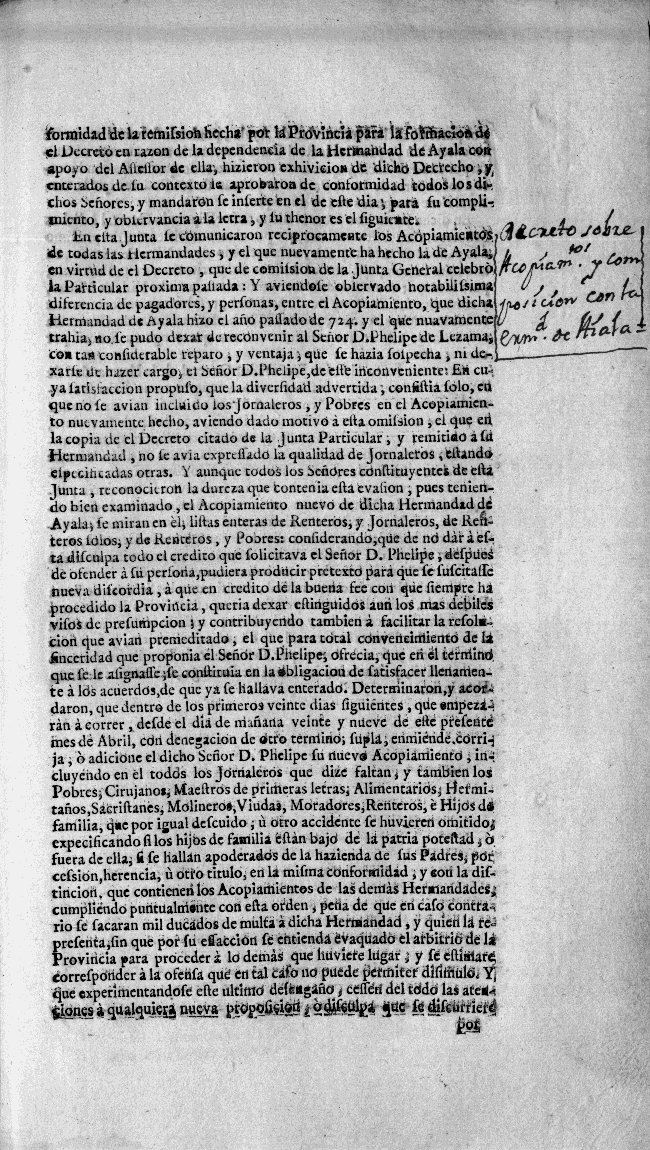 formidad de la remission hecha por la Provincia para la formacion de
el Decreto en razon de la dependencia de la Hermandad de Ayala con
apoyo del Assessor de ella, hizieron exhivicion de dicho Decrecho, y
enterados de su contexto le aprobaron de conformidad todos los di-
chos Señores, y mandaron se inserte en el de este dia; para su compli-
miento, y observancia à la letra, y su thenor es el siguiente.
En esta Junta se comunicaron reciprocamente los Acopiamientos
de todas las Hermandades, y el que nuevamente ha hecho la de Ayala;
en virtud de el Decreto, que de comission de la Junta General celebrò
la Particular proxima passada: Y aviendose observado notabilissima
diferencia de pagadores, y personas, entre el Acopiamiento, que dicha
Hermandad de Ayala hizo el año passado de 724. y el que nuavamente
trahia, no se pudo dexar de reconvenir al Señor D. Phelipe de Lezama,
con tan considerable reparo, y ventaja; que se hazia sospecha, ni de-
xarse de hazer cargo, el Señor D. Phelipe, de este inconveniente: En cu-
ya satisfaccion propuso, que la diversidad advertida, consistia solo, en
que no se avian incluido los Jornaleros, y Pobres en el Acopiamien-
to nuevamente hecho, aviendo dado motivo à esta omission, el que en
la copia de el Decreto citado de la Junta Particular, y remitido à su
Hermandad, no se avia expressado la qualidad de Jornaleros, estando
especificadas otras. Y aunque todos los Señores constituyentes de esta
Junta, reconocieron la dureza que contenia esta evasion; pues tenien-
do bien examinado, el Acopiamiento nuevo de dicha Hermandad de
Ayala; se miran en èl, listas enteras de Renteros, y Jornaleros, de Ren-
teros solos, y de Renteros, y Pobres: considerando, que de no dàr à es-
ta disculpa todo el credito que solicitava el Señor D. Phelipe, despues
de ofender à su persona, pudiera producir pretexto para que se suscitasse
nueva discordia, à que en credito de la buena fee con que siempre ha
procedido la Provincia, queria dexar estinguidos aun los mas debiles
visos de presumpcion; y contribuyendo tambien à facilitar la resolu-
cion que avian premeditado, el que para total convencimiento de la
sinceridad que proponia el Señor D. Phelipe, ofrecia, que en el termino
que se le asignasse, se constituia en la obligacion de satisfacer llenamen-
te à los acuerdos, de que ya se hallava enterado. Determinaron, y acor-
daron, que dentro de los primeros veinte dias siguientes, que empeza-
ràn à correr, desde el dia de mañana veinte y nueve de este presente
mes de Abril, con denegacion de otro termino; supla, enmiende, corri-
ja, ò adicione el dicho Señor D. Phelipe su nuevo Acopiamiento, in-
cluyendo en el todos los Jornaleros que dize faltan, y tambien los
Pobres, Cirujanos, Maestros de primeras letras, Alimentarios, Hermi-
taños, Sacristanes, Molineros, Viudas, Moradores, Renteros, è Hijos de
familia, que por igual descuido, ù otro accidente se huvieren omitido,
expecificando si los hijos de familia estàn bajo de la patria potestad, ò
fuera de ella; si se hallan apoderados de la hazienda de sus Padres, por
cession, herencia, ù otro titulo, en la misma conformidad, y con la dis-
tincion, que contienen los Acopiamientos de las demàs Hermandades,
cumpliendo puntualmente con esta orden, pena de que en caso contra-
rio se sacaran mil ducados de multa à dicha Hermandad, y quien la re-
presenta, sin que por su essaccion se entienda evaquado el arbitrio de la
Provincia para proceder à lo demàs que huviere lugar, y se estimare
corresponder à la ofensa que en tal caso no puede permiter disimulo. Y
que experimentandose este ultimo desengaño, cessen del todo las aten-
ciones à qualquiera nueva proposicion, ò disculpa que se discurriere
por
Decreto sobre
Acopiam.tos y com
posicion con la
Erm.d de Aiala